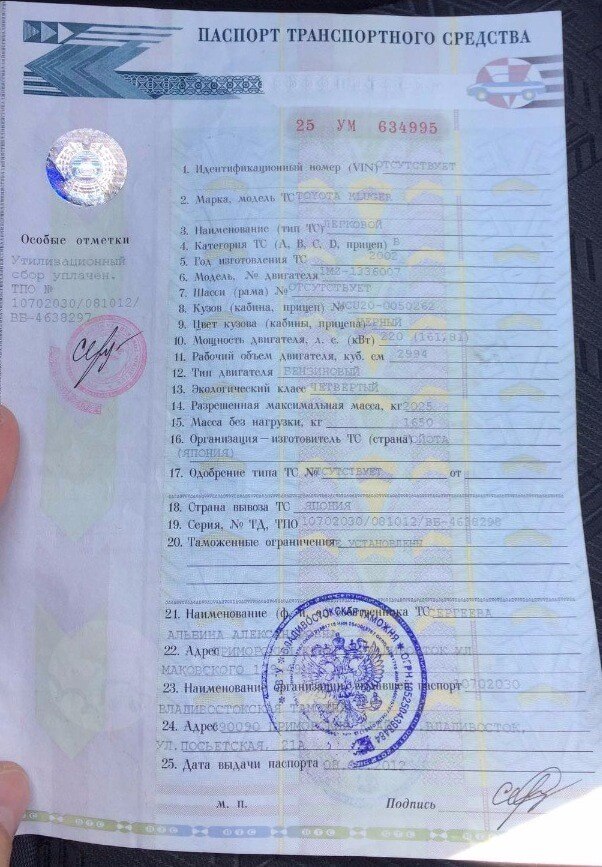 ПАСПОРТ ТРАНСПОРТНОГО СРЕДСТВА
25 УМ 634995
Особые отметки
Утилизационный
сбор уплачен.
ТПО №
10702030/081012/
ВБ-4638297
1. Идентификационный номер (VIN) ОТСУТСТВУЕТ
2. Марка, модель ТС TOYOTA KLUGER
3. Наименование (тип ТС) ЛЕГКОВОЙ
4. Категория ТС (А, В, С, D, прицеп) B
5. Год изготовления ТС 2002
6. Модель, № двигателя 1MZ-1336007
7. Шасси (рама) № ОТСУТСТВУЕТ
8. Кузов (кабина, прицеп) № MCU20-0050262
9. Цвет кузова (кабины, прицепа) ЧЕРНЫЙ
10. Мощность двигателя, л. с. (кВт) 220 (161,81)
11. Рабочий объем двигателя, куб. см 2994
12. Тип двигателя БЕНЗИНОВЫЙ
13. Экологический класс ЧЕТВЕРТЫЙ
14. Разрешенная максимальная масса, кг 2025
15. Масса без нагрузки, кг 1650
16. Организация—изготовитель ТС (страна) ТОЙОТА
(ЯПОНИЯ)
17. Одобрение типа ТС № ОТСУТСТВУЕТ от
18. Страна вывоза ТС ЯПОНИЯ
19. Серия, № ТД, ТПО 10702030/081012/ВБ-4638298
20. Таможенные ограничения НЕ УСТАНОВЛЕНЫ
21. Наименование (ф. и. о.) собственника ТС СЕРГЕЕВА
АЛЬБИНА
22. Адрес УЛ
МАКОВСКОГО
23. Наименование организации, выдавшей паспорт 10702030
ВЛАДИВОСТОКСКАЯ ТАМОЖНЯ
24. Адрес 690090 ВЛАДИВОСТОК,
УЛ.ПОСЬЕТСКАЯ, 21А
25. Дата выдачи паспорта 2012
ВЛАДИВОСТОКСКАЯ ТАМОЖНЯ
М. П. Подпись